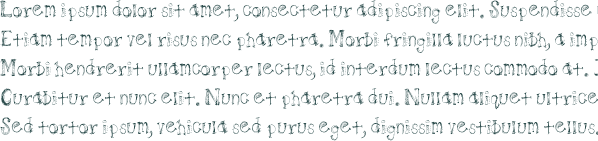 Lorem ipsum dolor sit amet, consectetur adipiscing elit. Suspendisse
Etiam tempor vel risus nec pharetra. Morbi fringilla luctus nibh, a imp
Morbi hendrerit ullamcorper lectus, id interdum lectus commodo at.
Curabitur et nunc elit. Nunc et pharetra dui. Nullam aliquet ultrice
Sed tortor ipsum, vehicula sed purus eget, dignissim vestibulum tellus.